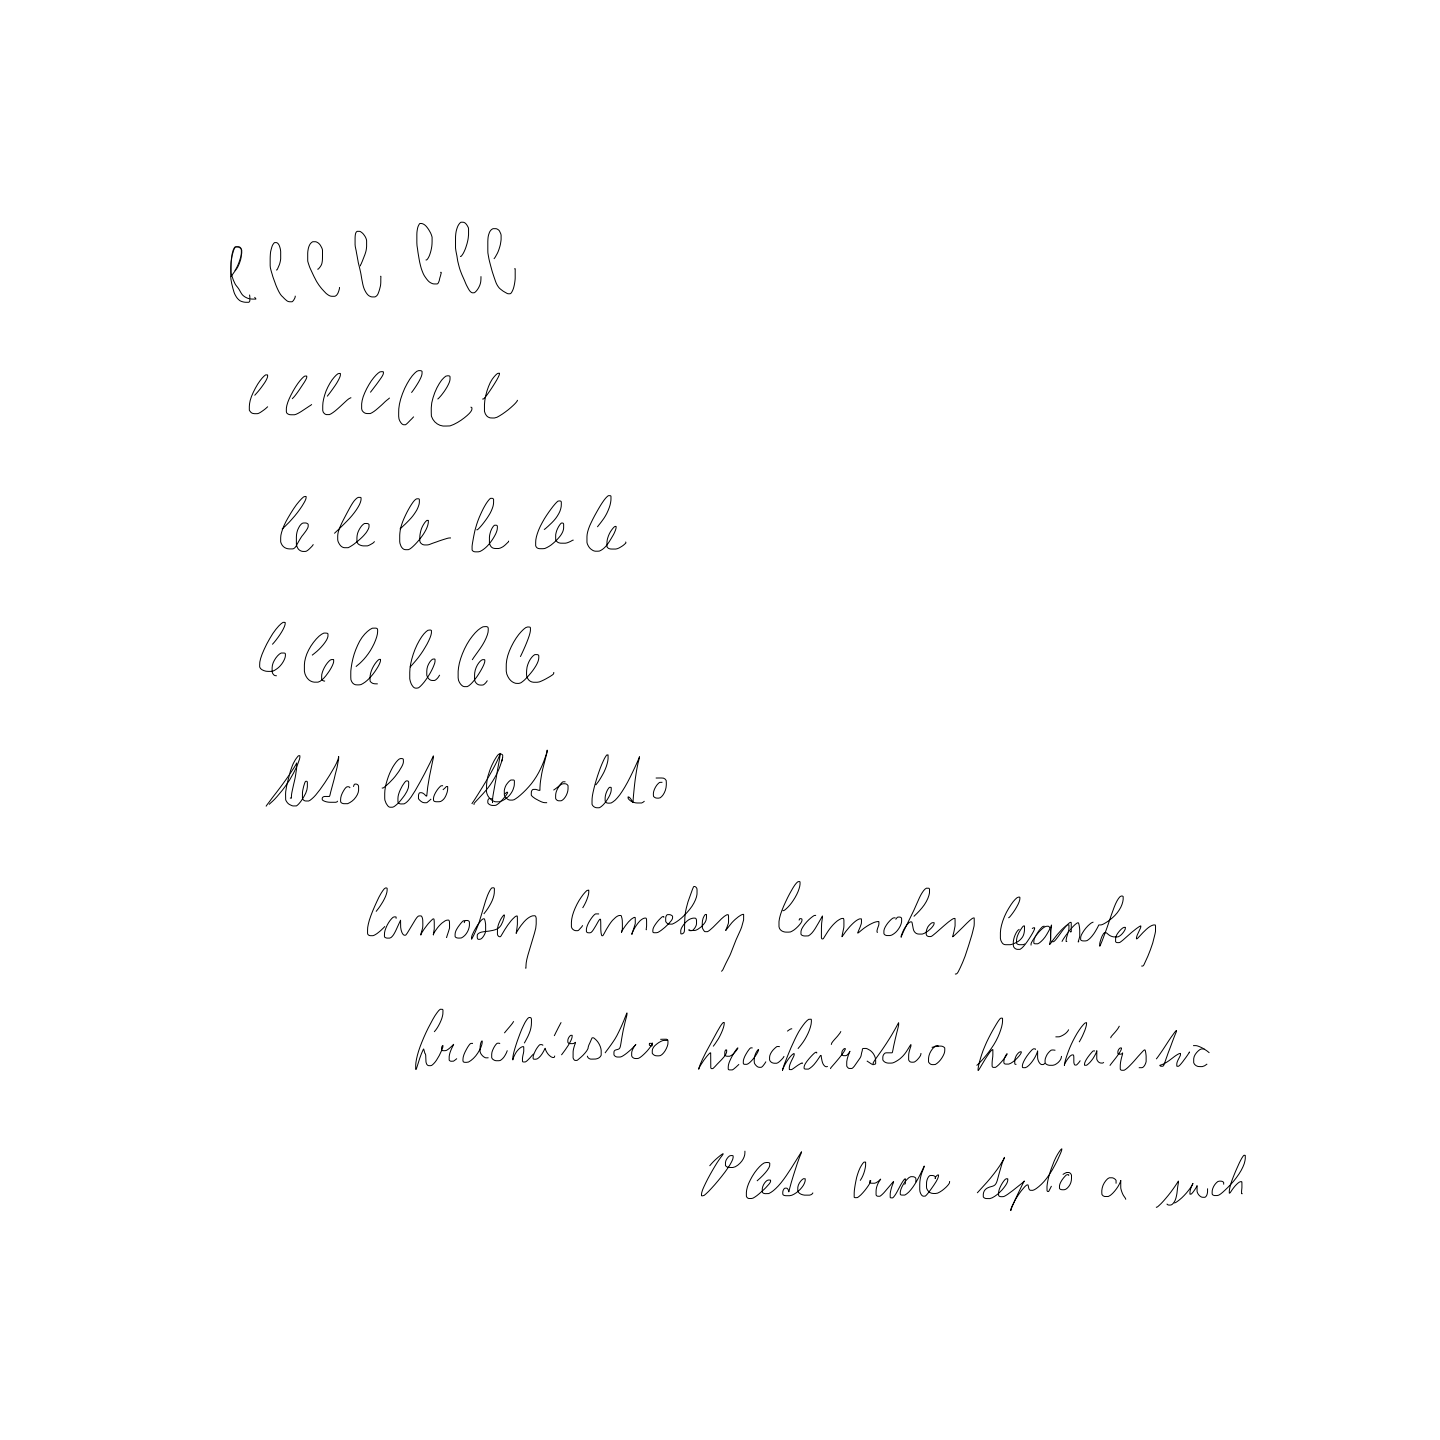 l l l l l l l
e e e e e e e
le le le le le le
le le le le le le
leto leto leto leto
lamoken lamoken lamoken lamoken
hračkárstvo hračkárstvo hračkárstvo
V lete bude teplo a such